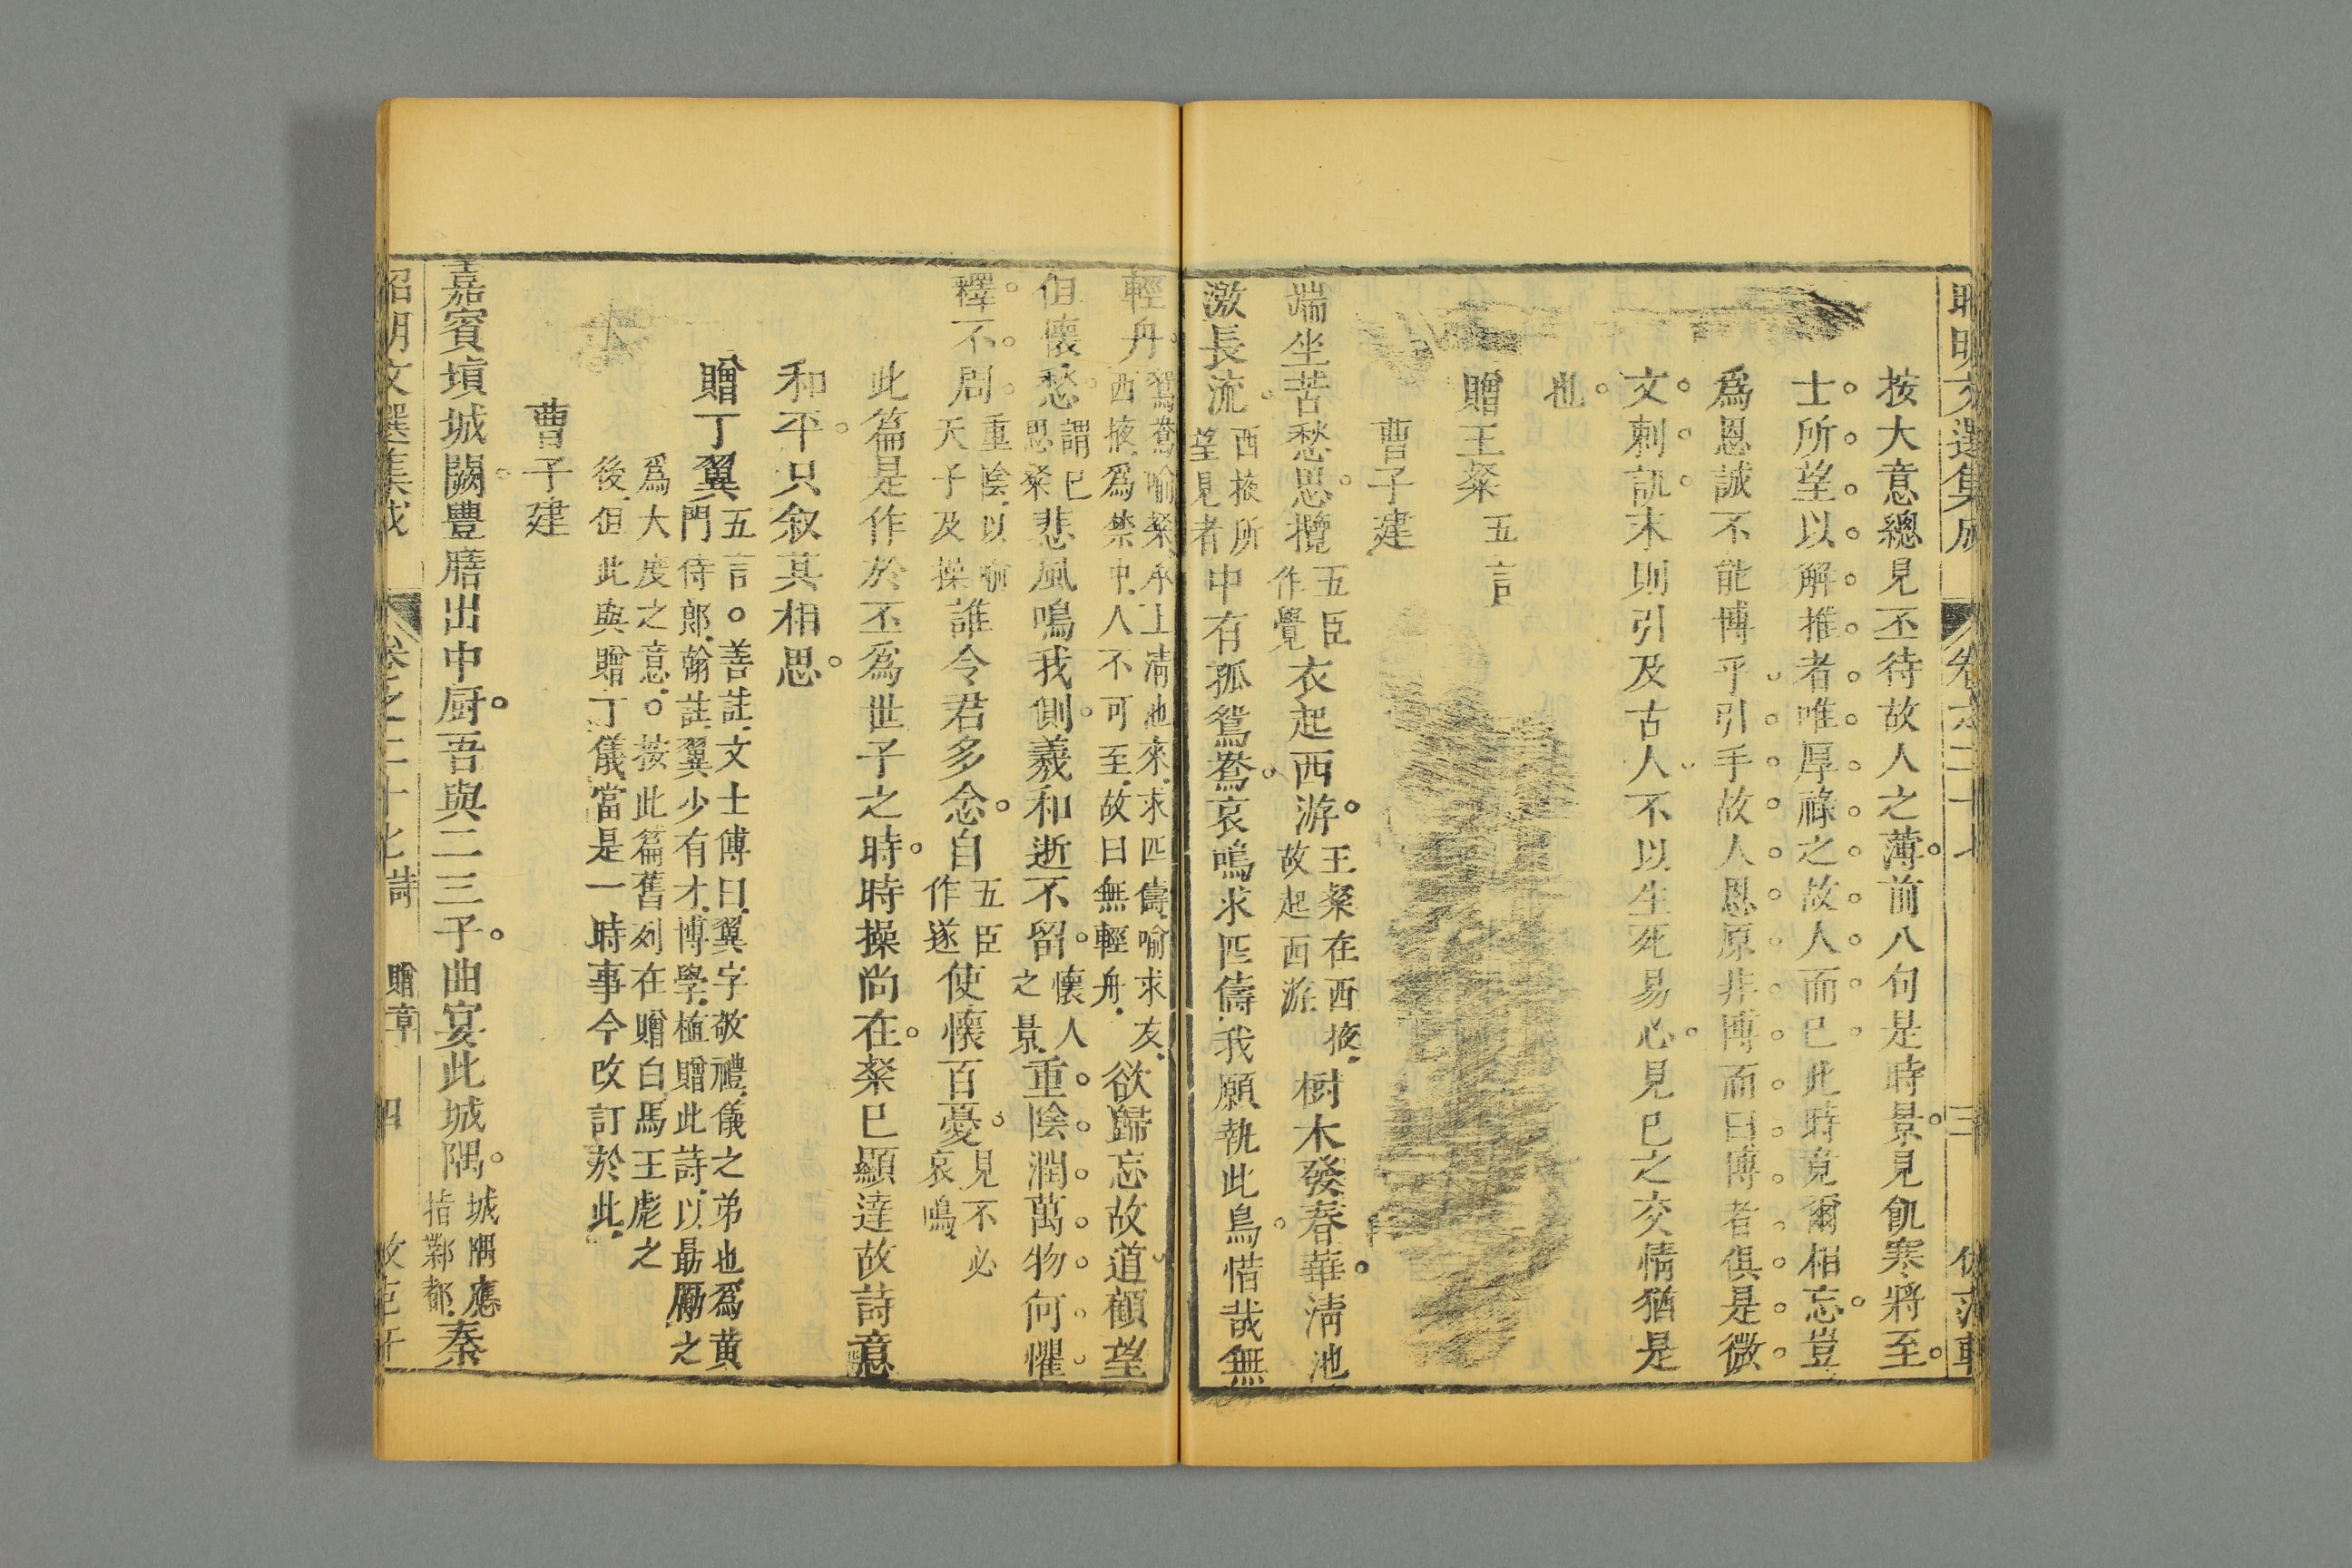 按大意總見丕待故人之薄前八句是時景見飢寒將至
士所望以解推者唯厚祿之故人而已此時竟爾相忘豈
爲恩誠不能博乎引手故人恩原非博而曰博者俱是微
文刺譏末則引及古人不以生死易心見己之交情猶是
也
贈王粲五言
曹子建
端坐苦愁思攬五臣作覺衣起西游王粲在西掖故起西游樹木發春華淸池
激長流西掖所望見者中有孤鴛鴦哀鳴求匹儔我願執此鳥惜哉無
輕舟鴛鴦喻粲承上淸池來求匹儔喻求友西掖爲禁中人不可至故曰無輕舟欲歸忘故道顧望
但懷愁謂己思粲悲風鳴我側羲和逝不留懷人之景重陰潤萬物何懼
釋不周重陰以喻天子及操誰令君多念自五臣作遂使懷百憂見不必哀鳴
此篇是作於丕爲世子之時時操尚在粲已顯達故詩意
和平只叙其相思
贈丁翼五言善註文士傅曰翼字敬禮儀之弟也爲黄門侍郎翰註翼少有才博學植贈此詩以最勵之
爲大度之意按此篇舊列在贈白馬王彪之後但此與贈丁儀當是一時事今改訂於此
曹子建
嘉賓塡城闕豐膳出中厨吾與二三子曲宴此城隅城隅應指鄴都秦
昭明文選集成 卷之二十七詩 贈章 四